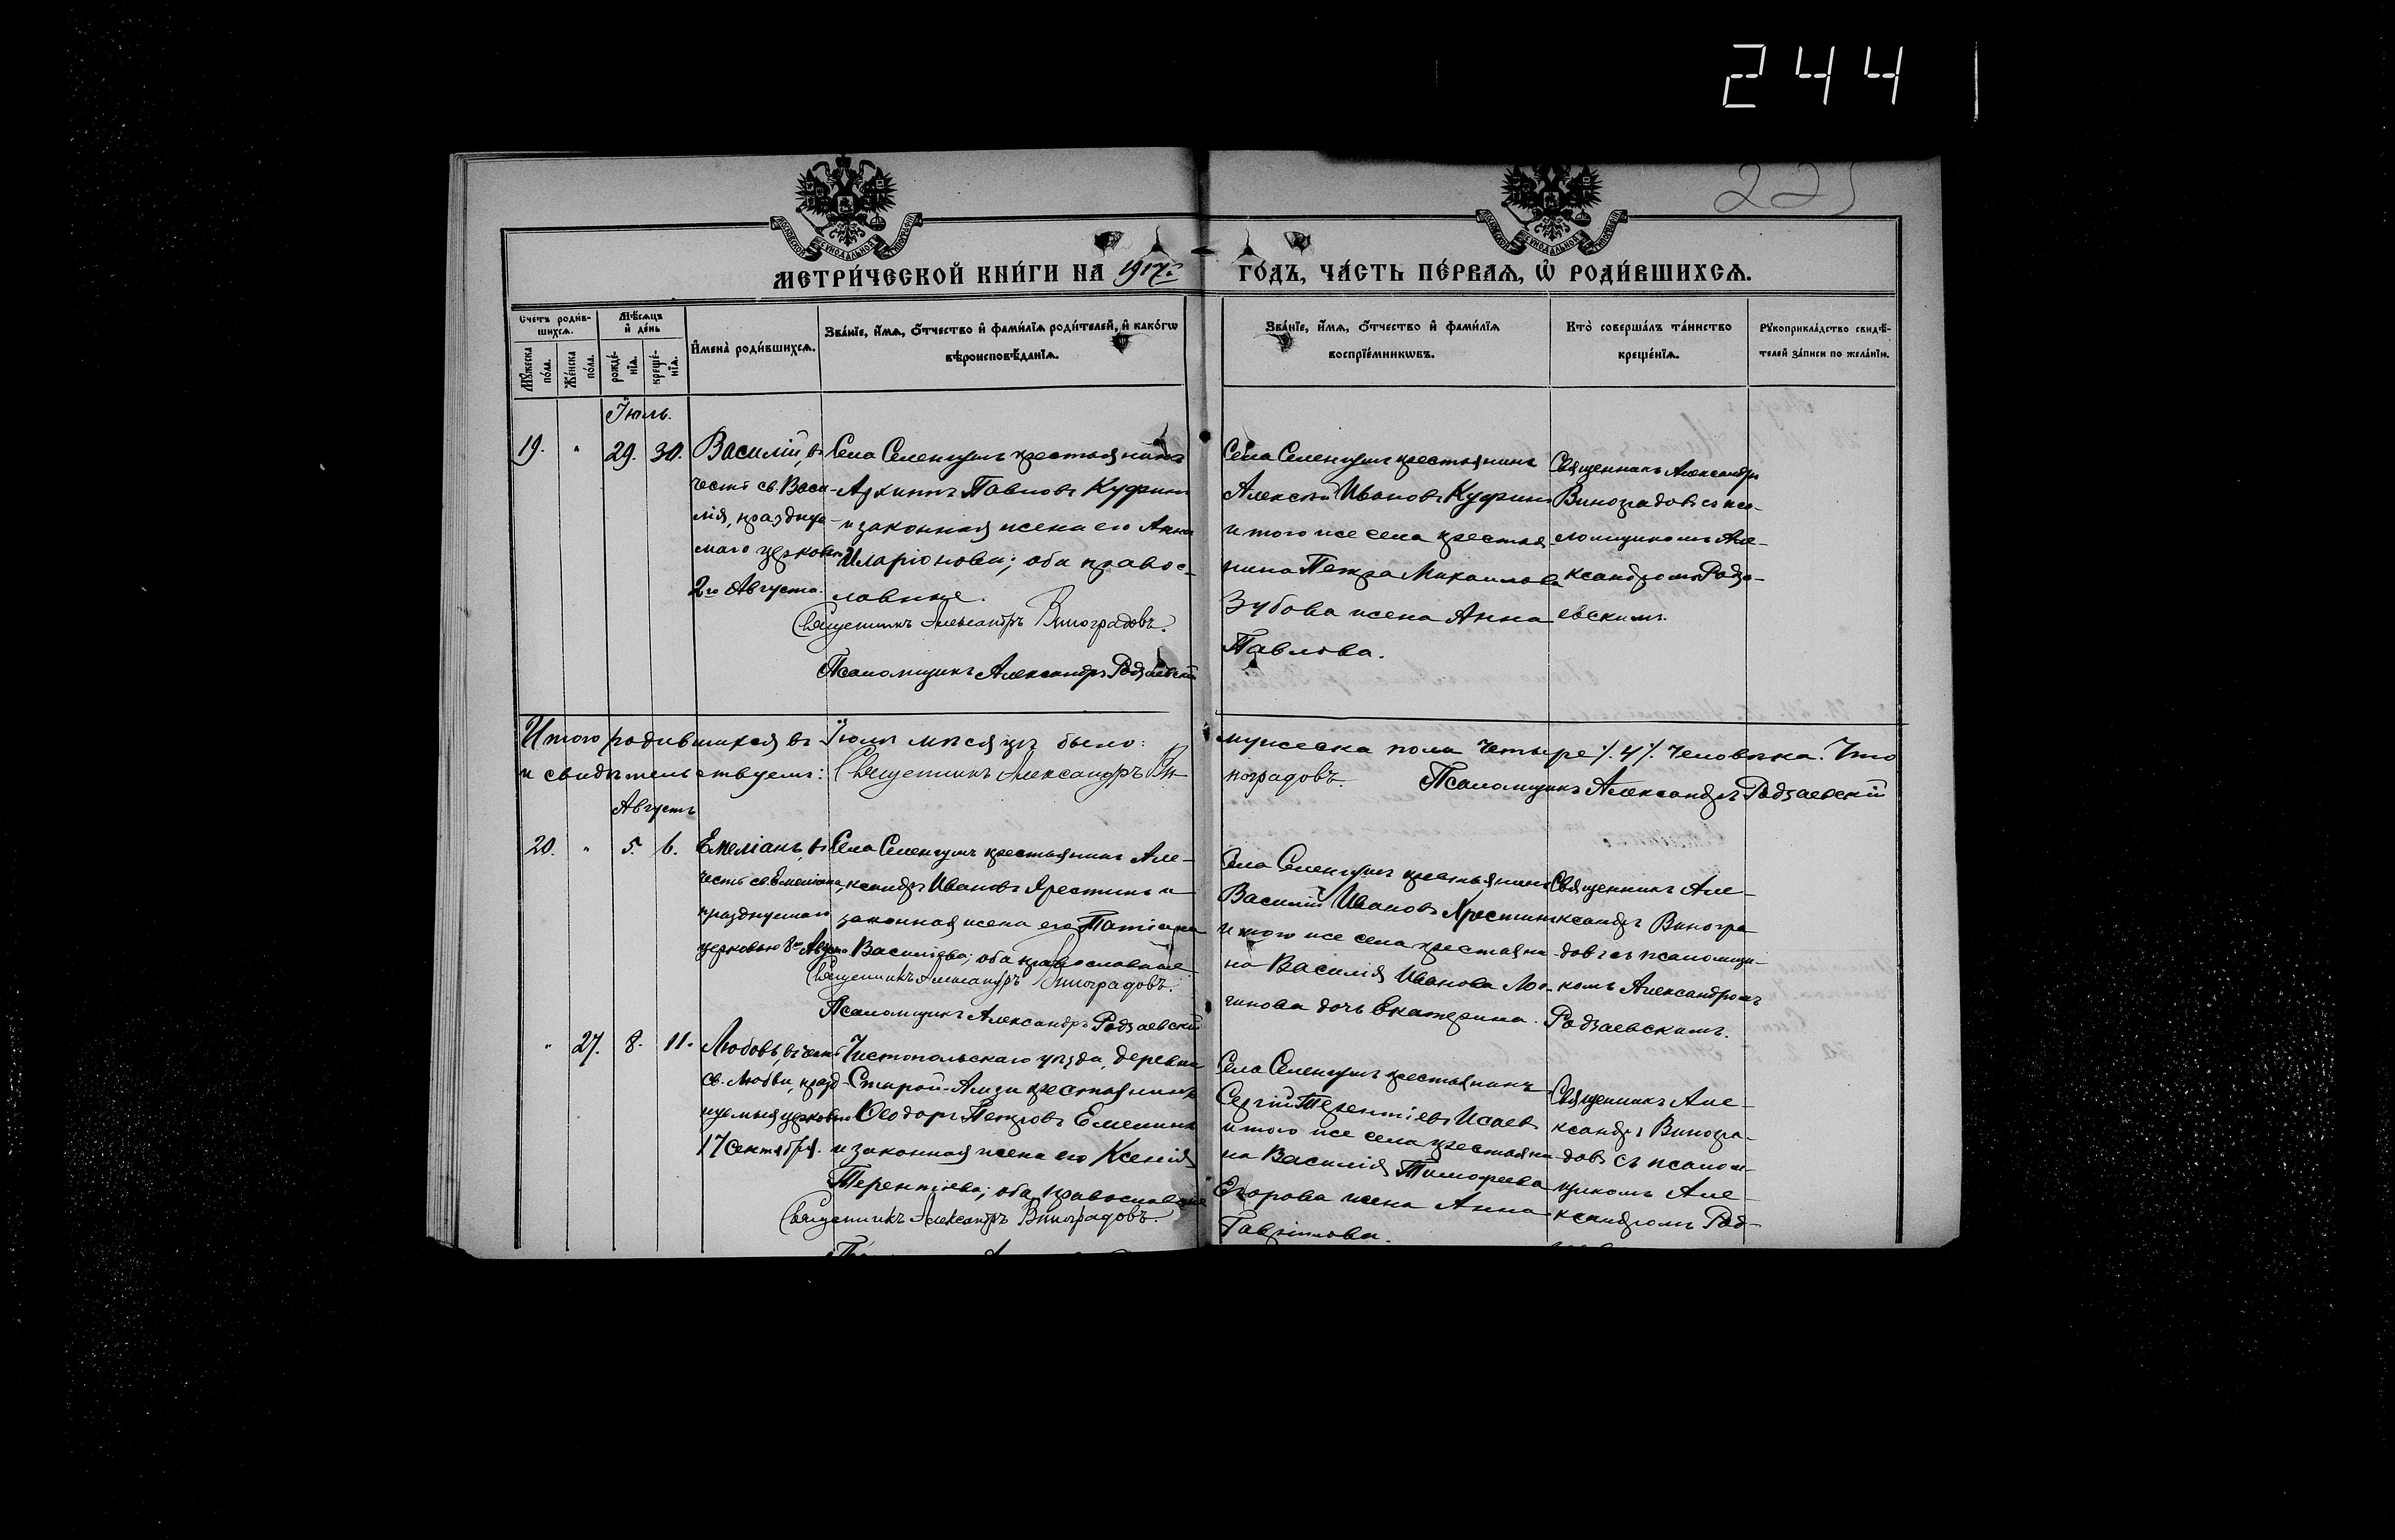 244
225
МЕТРИ́ЧЕСКОЙ КНИ́ГИ НА 1917 г. ГО́ДЪ, ЧА́СТЬ ПЕ́РВАѦ, Ѡ҆ РОДИ́ВШИХСѦ.
Сче́тъ роди́вшихсѧ.
Мꙋ́жеска по́ла.
Же́нска по́ла.
Мѣ́сѧцъ и҆ де́нь
рожде́нїѧ.
креще́нїѧ.
И҆мена̀ роди́вшихсѧ.
Зва́нїе, и҆́мѧ, ѻ҆́тчество и҆ фами́лїѧ роди́телей, и҆ како́гѡ
вѣроисповѣ́данїѧ.
Зва́нїе, и҆́мѧ, ѻ҆́тчество и҆ фами́лїѧ
воспрїе́мникѡвъ.
Кто̀ соверша́лъ та́инство
креще́нїѧ.
Рꙋкоприкла́дство свидѣ́-
телей за́писи по жела́нїю.
Іюль.
19. " 29. 30.
Василій, въ
честь св. Васи-
лія, празднуе-
маго церковію
2го Августа.
Села Селенгушъ крестьянинъ
Архиппъ Павловъ Куфинъ
и законная жена его Анна
Иларіонова; оба правос-
лавные.
Священникъ Александръ Виноградовъ.
Псаломщикъ Александръ Радзаевскій
Села Селенгушъ крестьянинъ
Алексѣй Ивановъ Куфинъ
и того же села крестья-
нина Петра Михаилова
Зубова жена Анна
Павлова.
Священникъ Александръ
Виноградовъ съ пса-
ломщикомъ Але-
ксандромъ Радза-
евскимъ.
Итого родившихся въ Іюлѣ мѣсяцѣ было: мужеска пола четыре /.4/. человѣка. Что
и свидѣтельствуемъ: Священникъ Александръ Ви- ноградовъ. Псаломщикъ Александръ Радзаевскій
Августъ
20. " 5. 6.
Емеліанъ, въ
честь св. Емеліана,
празднуемаго
церковью 8го Августа
Села Селенгушъ крестьянинъ Але-
ксандръ Ивановъ Хрестинъ и
законная жена его Татіана
Василіева; оба православные
Священникъ Александръ Виноградовъ.
Псаломщикъ Александръ Радзаевскій
Села Селенгушъ крестьянинъ
Василій Ивановъ Хрестинъ
и того же села крестьяни-
на Василія Иванова Ло-
гинова дочь Екатерина.
Священникъ Але-
ксандръ Виногра-
довъ съ псаломщи-
комъ Александромъ
Радзаевскимъ.
" 27. 8. 11.
Любовь, въ честь
св. Любви, празд-
нуемыя церковію
17 Сентября.
Чистопольскаго уѣзда, деревни
Старой-Амзи крестьянинъ
Ѳеодоръ Петровъ Емелинъ
и законная жена его Ксенія
Терентіева; оба православные
Священникъ Александръ Виноградовъ.
Села Селенгушъ крестьянинъ
Сергій Терентіевъ Исаевъ
и того же села крестьяни-
на Василія Тимофеева
Егорова жена Анна
Гавріилова.
Священникъ Але-
ксандръ Виногра-
довъ съ псалом-
щикомъ Але-
ксандромъ Рад-